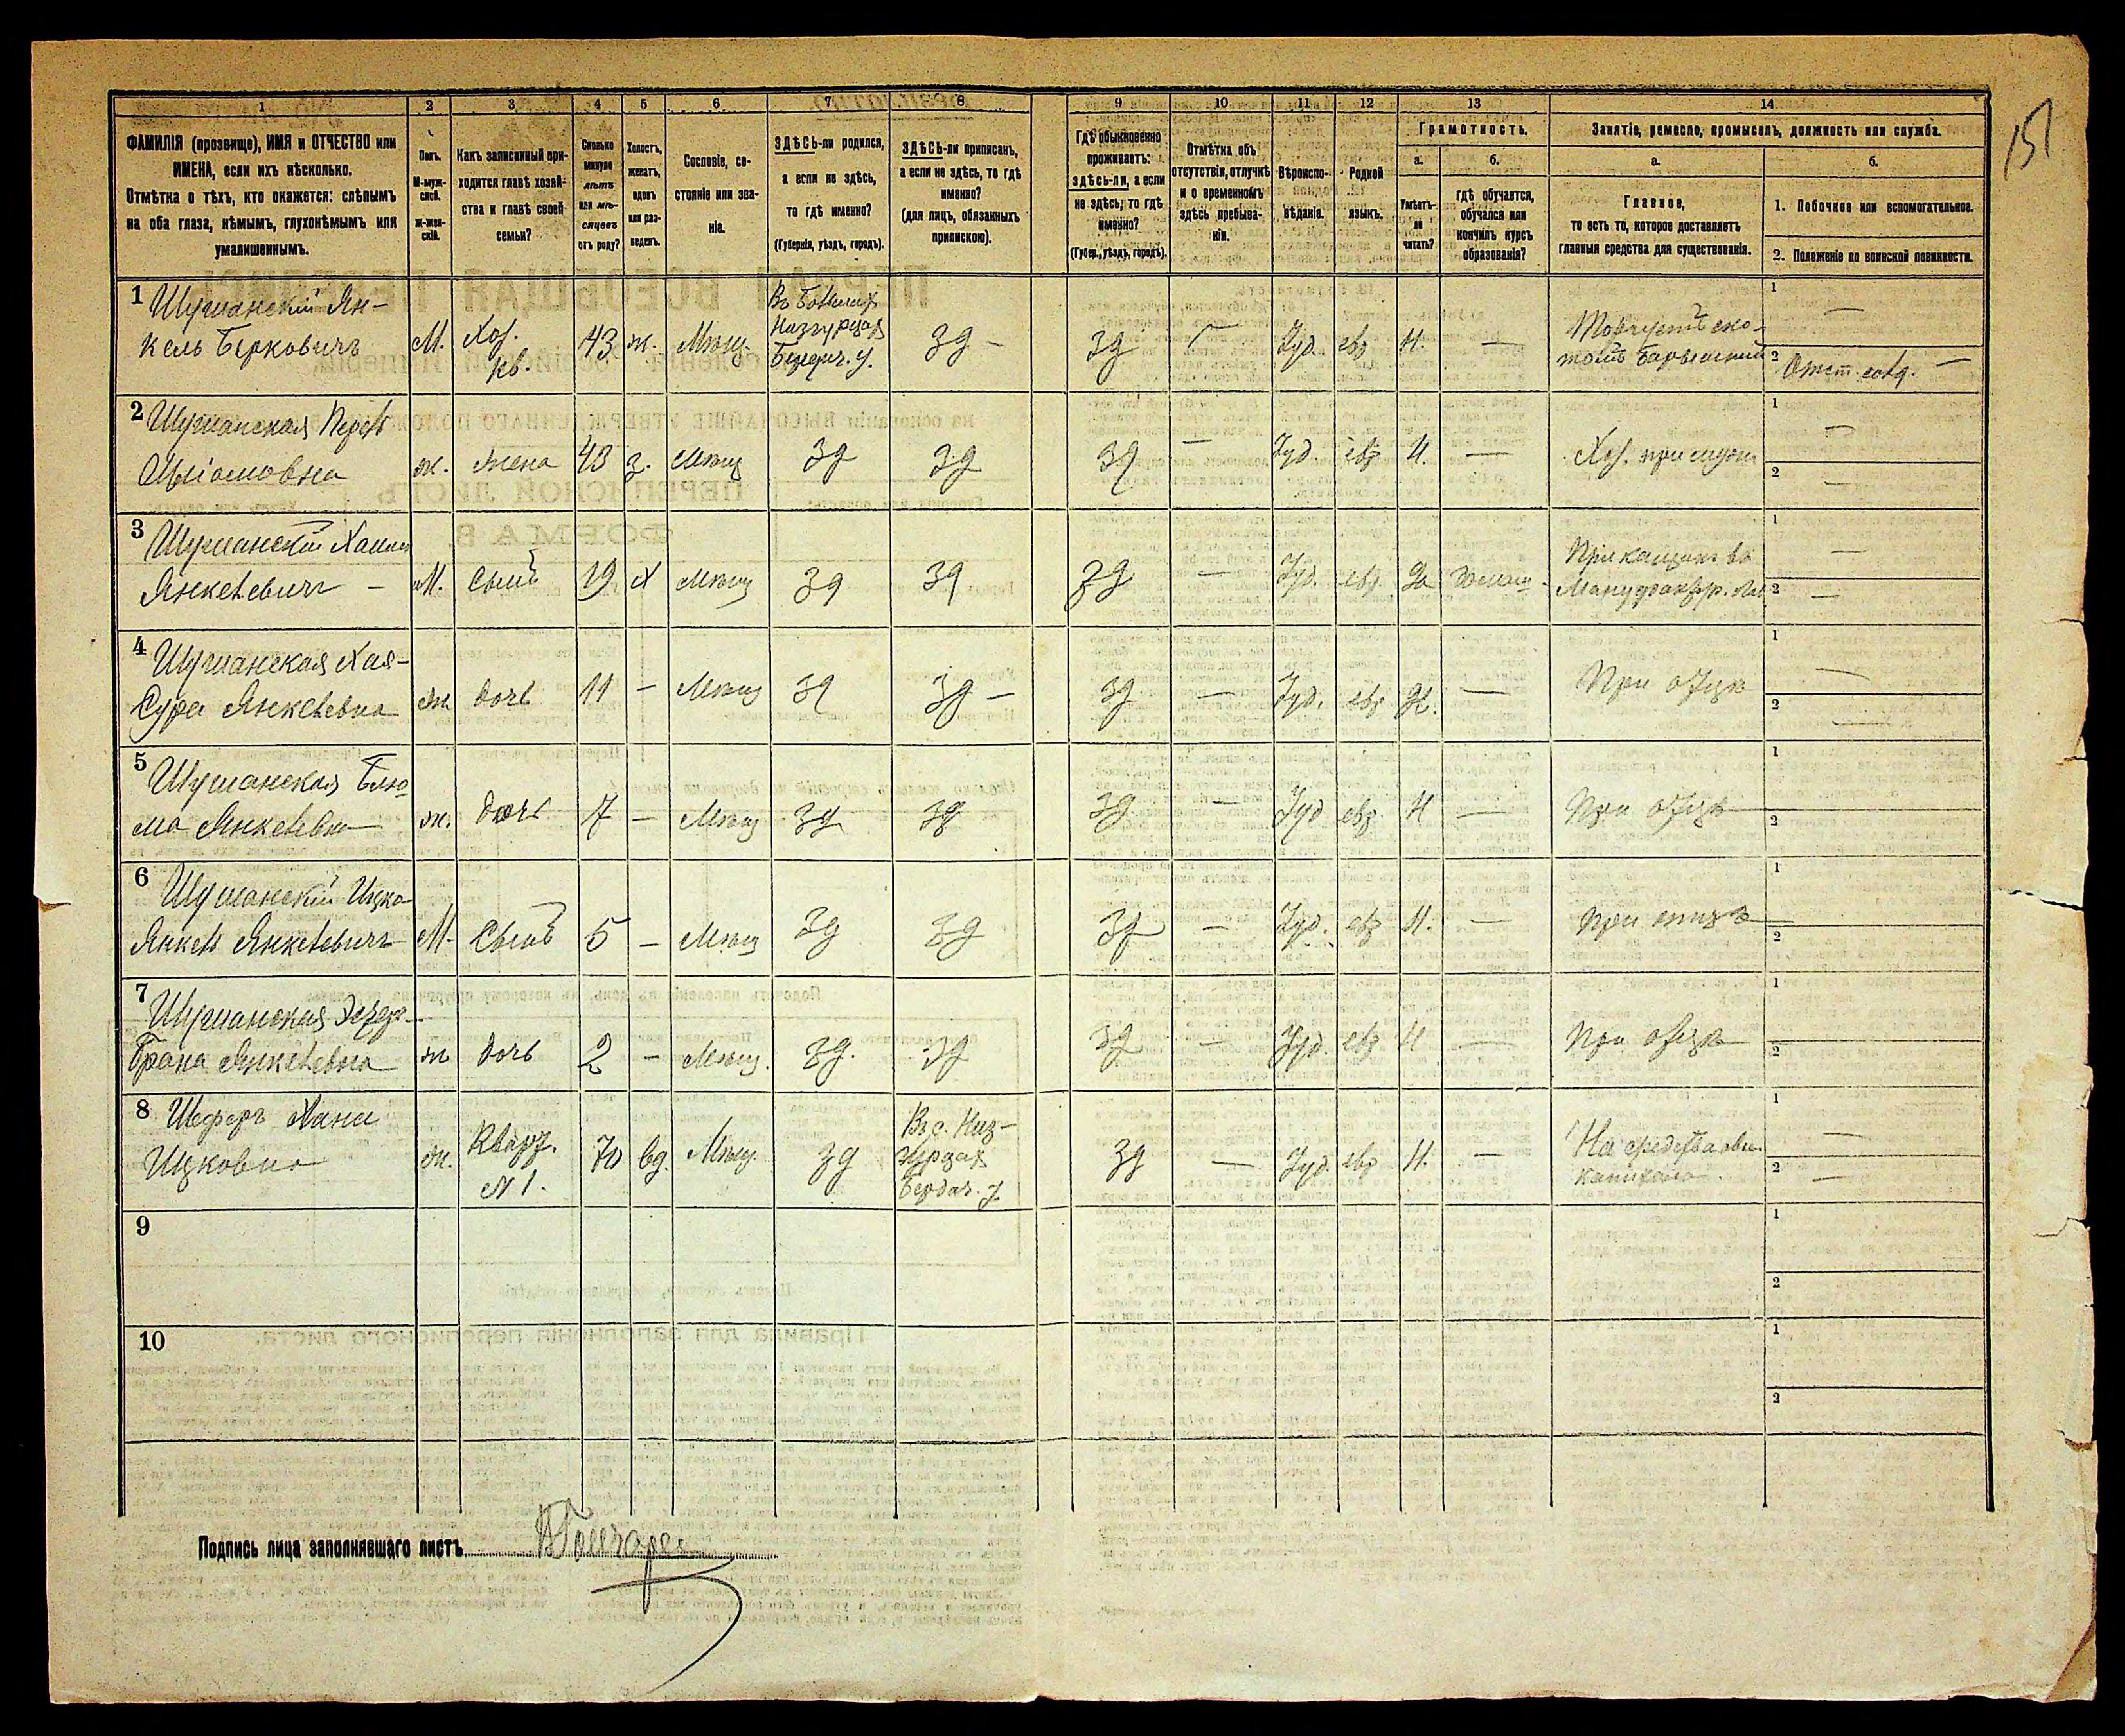 151
1 2 3 4 5 6 7 8 9 10 11 12 13 14
ФАМИЛІЯ (прозвище), ИМЯ и ОТЧЕСТВО или
ИМЕНА, если ихъ нѣсколько.
Отмѣтка о тѣхъ, кто окажется: слѣпымъ
на оба глаза, нѣмымъ, глухонѣмымъ или
умалишеннымъ.
Полъ.
М-муж-
ской.
ж-жен-
скій.
Какъ записанный при-
ходится главѣ хозяй-
ства и главѣ своей
семьи?
Сколько
минуло
лѣтъ
или мѣ-
сяцевъ
отъ роду?
Холостъ,
женатъ,
вдовъ
или раз-
веденъ.
Сословіе, со-
стояніе или зва-
ніе.
ЗДѢСЬ-ли родился,
а если не здѣсь,
то гдѣ именно?
(Губернія, уѣздъ, городъ).
ЗДѢСЬ-ли приписанъ,
а если не здѣсь, то гдѣ
именно?
(для лицъ, обязанныхъ
припискою).
Гдѣ обыкновенно
проживаетъ:
здѣсь-ли, а если
не здѣсь, то гдѣ
именно?
(Губер., уѣздъ, городъ).
Отмѣтка объ
отсутствіи, отлучкѣ
и о временномъ
здѣсь пребыва-
ніи.
Вѣроиспо-
вѣданіе.
Родной
языкъ.
Грамотность.
а.
Умѣетъ-
ли
читать?
б.
гдѣ обучается,
обучался или
кончилъ курсъ
образованія?
Занятіе, ремесло, промыселъ, должность или служба.
а.
Главное,
то есть то, которое доставляетъ
главныя средства для существованія.
б.
1. Побочное или вспомогательное.
2. Положеніе по воинской повинности.
1 Шуманскій Ян-
кель Берковичъ
М. Хоз.
кв.
43 ж. Мѣщ.
Бердич. у.
зд — зд Іуд. евр Н. —
1 —
2 Отст. солд. —
2 Шуманская
ж. жена 43 з. Мѣщ зд зд зд — Іуд. евр Н. — Хоз. при мужѣ
1 —
2 —
3 Шуманскій
Янкелевичъ —
М. сынъ 19 Х Мѣщ зд зд зд — Іуд. евр. Да
Прикащик. въ
1 —
2 —
4 Шуманская Хая-
Сура Янкелевна
ж. дочь 11 — Мѣщ зд зд — зд — Іуд. евр Н. — При отцѣ
1 —
2 —
5 Шуманская Блю-
ма Янкелевна
ж. дочь 7 — Мѣщ зд зд зд — Іуд евр Н — При отцѣ
1
2
6 Шуманскій Ицко-
Янкель Янкелевичъ
М. Сынъ 5 — Мѣщ зд зд зд — Іуд. евр Н. — При отцѣ
1
2
7 Шуманская
Брана Янкелевна
ж дочь 2 — Мѣщ. зд. зд зд — Іуд. евр Н — При отцѣ
1
2
8 Шеферъ Хана
Ицковна
ж. Кварт.
№ 1.
70 вд. Мѣщ. зд
Бердич. у.
зд — Іуд. евр Н. —
На средства
капитала.
1 —
2 —
9
1
2
10
1
2
Подпись лица заполнявшаго листъ